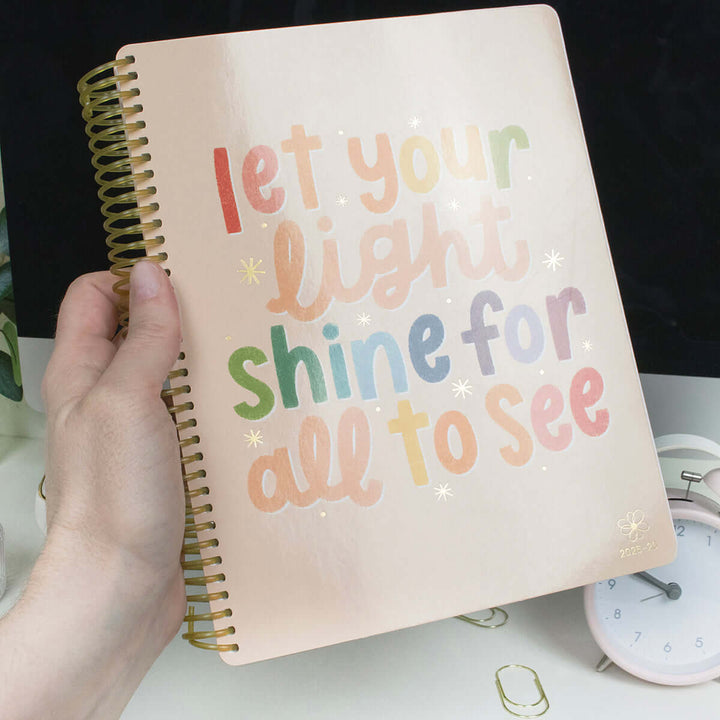 let your
light
shine for
all to see
2025-26